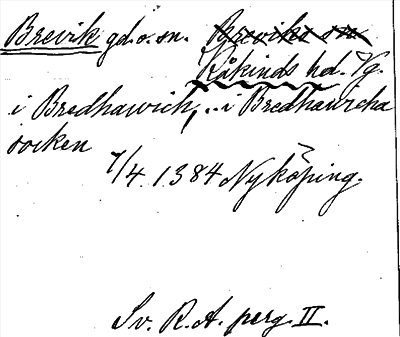 Brevik gd. o. sn. Breviks sn
Kåkinds hd. Vg.
i Bredhawich, .. i Bredhawicha
socken
7/4 1384 Nyköping.
Sv. R. A. perg. II.